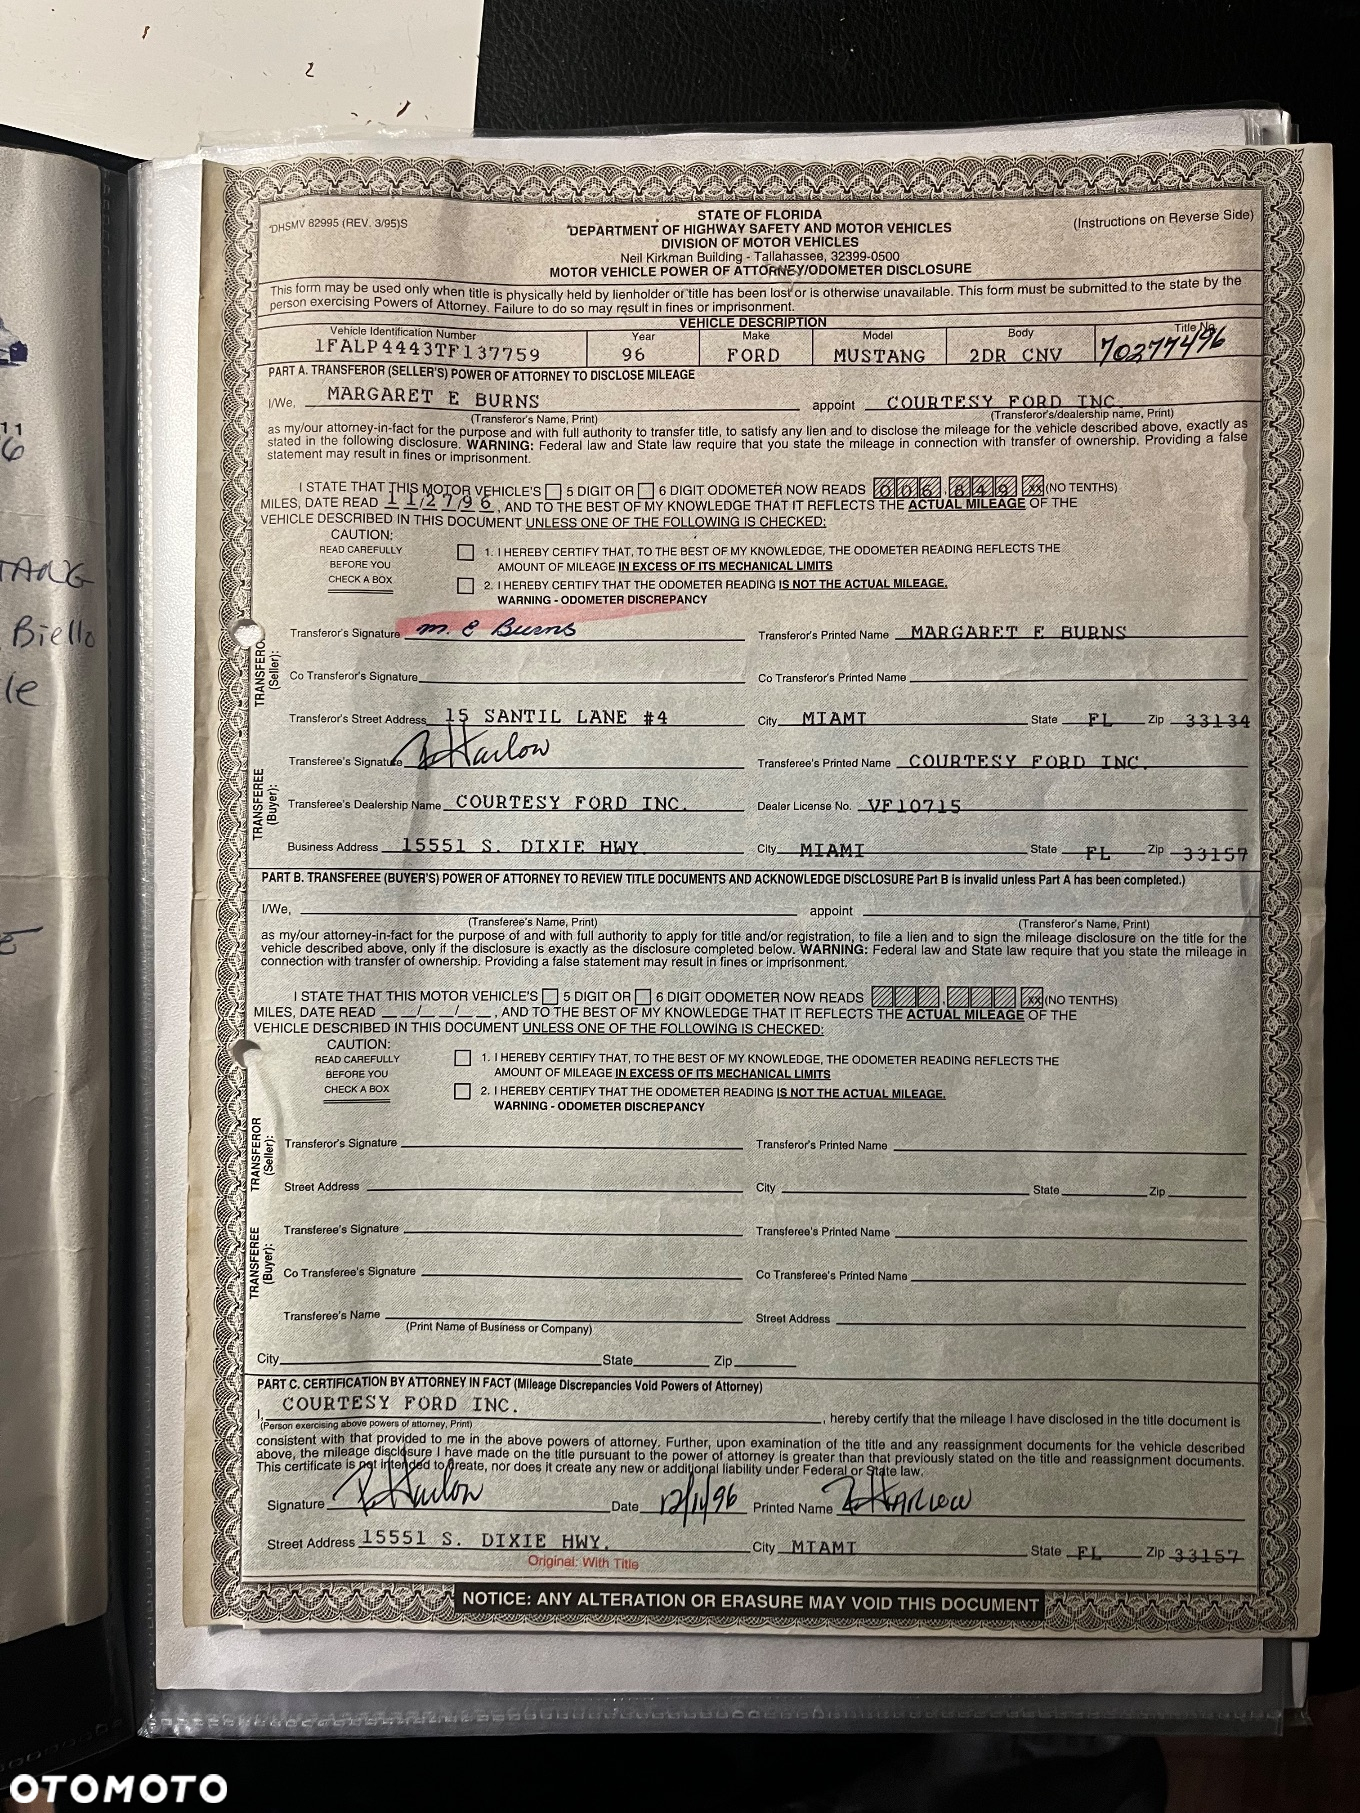 11
6
TANG
Biello
le
DHSMV 82995 (REV. 3/95)S
STATE OF FLORIDA
DEPARTMENT OF HIGHWAY SAFETY AND MOTOR VEHICLES
DIVISION OF MOTOR VEHICLES
Neil Kirkman Building - Tallahassee, 32399-0500
MOTOR VEHICLE POWER OF ATTORNEY/ODOMETER DISCLOSURE
(Instructions on Reverse Side)
This form may be used only when title is physically held by lienholder or title has been lost or is otherwise unavailable. This form must be submitted to the state by the
person exercising Powers of Attorney. Failure to do so may result in fines or imprisonment.
VEHICLE DESCRIPTION
Vehicle Identification Number Year Make Model Body Title No.
1FALP4443TF137759 96 FORD MUSTANG 2DR CNV 70277496
PART A. TRANSFEROR (SELLER'S) POWER OF ATTORNEY TO DISCLOSE MILEAGE
I/We, MARGARET E BURNS appoint COURTESY FORD INC
(Transferor's Name, Print) (Transferor's/dealership name, Print)
as my/our attorney-in-fact for the purpose and with full authority to transfer title, to satisfy any lien and to disclose the mileage for the vehicle described above, exactly as
stated in the following disclosure. WARNING: Federal law and State law require that you state the mileage in connection with transfer of ownership. Providing a false
statement may result in fines or imprisonment.
I STATE THAT THIS MOTOR VEHICLE'S 5 DIGIT OR 6 DIGIT ODOMETER NOW READS 006,849 XX (NO TENTHS)
MILES, DATE READ 11/27/96, AND TO THE BEST OF MY KNOWLEDGE THAT IT REFLECTS THE ACTUAL MILEAGE OF THE
VEHICLE DESCRIBED IN THIS DOCUMENT UNLESS ONE OF THE FOLLOWING IS CHECKED:
CAUTION:
READ CAREFULLY
BEFORE YOU
CHECK A BOX
1. I HEREBY CERTIFY THAT, TO THE BEST OF MY KNOWLEDGE, THE ODOMETER READING REFLECTS THE
AMOUNT OF MILEAGE IN EXCESS OF ITS MECHANICAL LIMITS
2. I HEREBY CERTIFY THAT THE ODOMETER READING IS NOT THE ACTUAL MILEAGE.
WARNING - ODOMETER DISCREPANCY
TRANSFEROR (Seller):
Transferor's Signature M. E Burns Transferor's Printed Name MARGARET E BURNS
Co Transferor's Signature Co Transferor's Printed Name
Transferor's Street Address 15 SANTIL LANE #4 City MIAMI State FL Zip 33134
TRANSFEREE (Buyer):
Transferee's Signature R Harlow Transferee's Printed Name COURTESY FORD INC.
Transferee's Dealership Name COURTESY FORD INC. Dealer License No. VF10715
Business Address 15551 S. DIXIE HWY. City MIAMI State FL Zip 33157
PART B. TRANSFEREE (BUYER'S) POWER OF ATTORNEY TO REVIEW TITLE DOCUMENTS AND ACKNOWLEDGE DISCLOSURE Part B is invalid unless Part A has been completed.)
I/We, appoint
(Transferee's Name, Print) (Transferor's Name, Print)
as my/our attorney-in-fact for the purpose of and with full authority to apply for title and/or registration, to file a lien and to sign the mileage disclosure on the title for the
vehicle described above, only if the disclosure is exactly as the disclosure completed below. WARNING: Federal law and State law require that you state the mileage in
connection with transfer of ownership. Providing a false statement may result in fines or imprisonment.
I STATE THAT THIS MOTOR VEHICLE'S 5 DIGIT OR 6 DIGIT ODOMETER NOW READS , XX (NO TENTHS)
MILES, DATE READ __/__/__, AND TO THE BEST OF MY KNOWLEDGE THAT IT REFLECTS THE ACTUAL MILEAGE OF THE
VEHICLE DESCRIBED IN THIS DOCUMENT UNLESS ONE OF THE FOLLOWING IS CHECKED:
CAUTION:
READ CAREFULLY
BEFORE YOU
CHECK A BOX
1. I HEREBY CERTIFY THAT, TO THE BEST OF MY KNOWLEDGE, THE ODOMETER READING REFLECTS THE
AMOUNT OF MILEAGE IN EXCESS OF ITS MECHANICAL LIMITS
2. I HEREBY CERTIFY THAT THE ODOMETER READING IS NOT THE ACTUAL MILEAGE.
WARNING - ODOMETER DISCREPANCY
TRANSFEROR (Seller):
Transferor's Signature Transferor's Printed Name
Street Address City State Zip
TRANSFEREE (Buyer):
Transferee's Signature Transferee's Printed Name
Co Transferee's Signature Co Transferee's Printed Name
Transferee's Name Street Address
(Print Name of Business or Company)
City State Zip
PART C. CERTIFICATION BY ATTORNEY IN FACT (Mileage Discrepancies Void Powers of Attorney)
I, COURTESY FORD INC. , hereby certify that the mileage I have disclosed in the title document is
(Person exercising above powers of attorney, Print)
consistent with that provided to me in the above powers of attorney. Further, upon examination of the title and any reassignment documents for the vehicle described
above, the mileage disclosure I have made on the title pursuant to the power of attorney is greater than that previously stated on the title and reassignment documents.
This certificate is not intended to create, nor does it create any new or additional liability under Federal or State law.
Signature R Harlow Date 12/11/96 Printed Name R HARLOW
Street Address 15551 S. DIXIE HWY. City MIAMI State FL Zip 33157
Original: With Title
NOTICE: ANY ALTERATION OR ERASURE MAY VOID THIS DOCUMENT
OTOMOTO